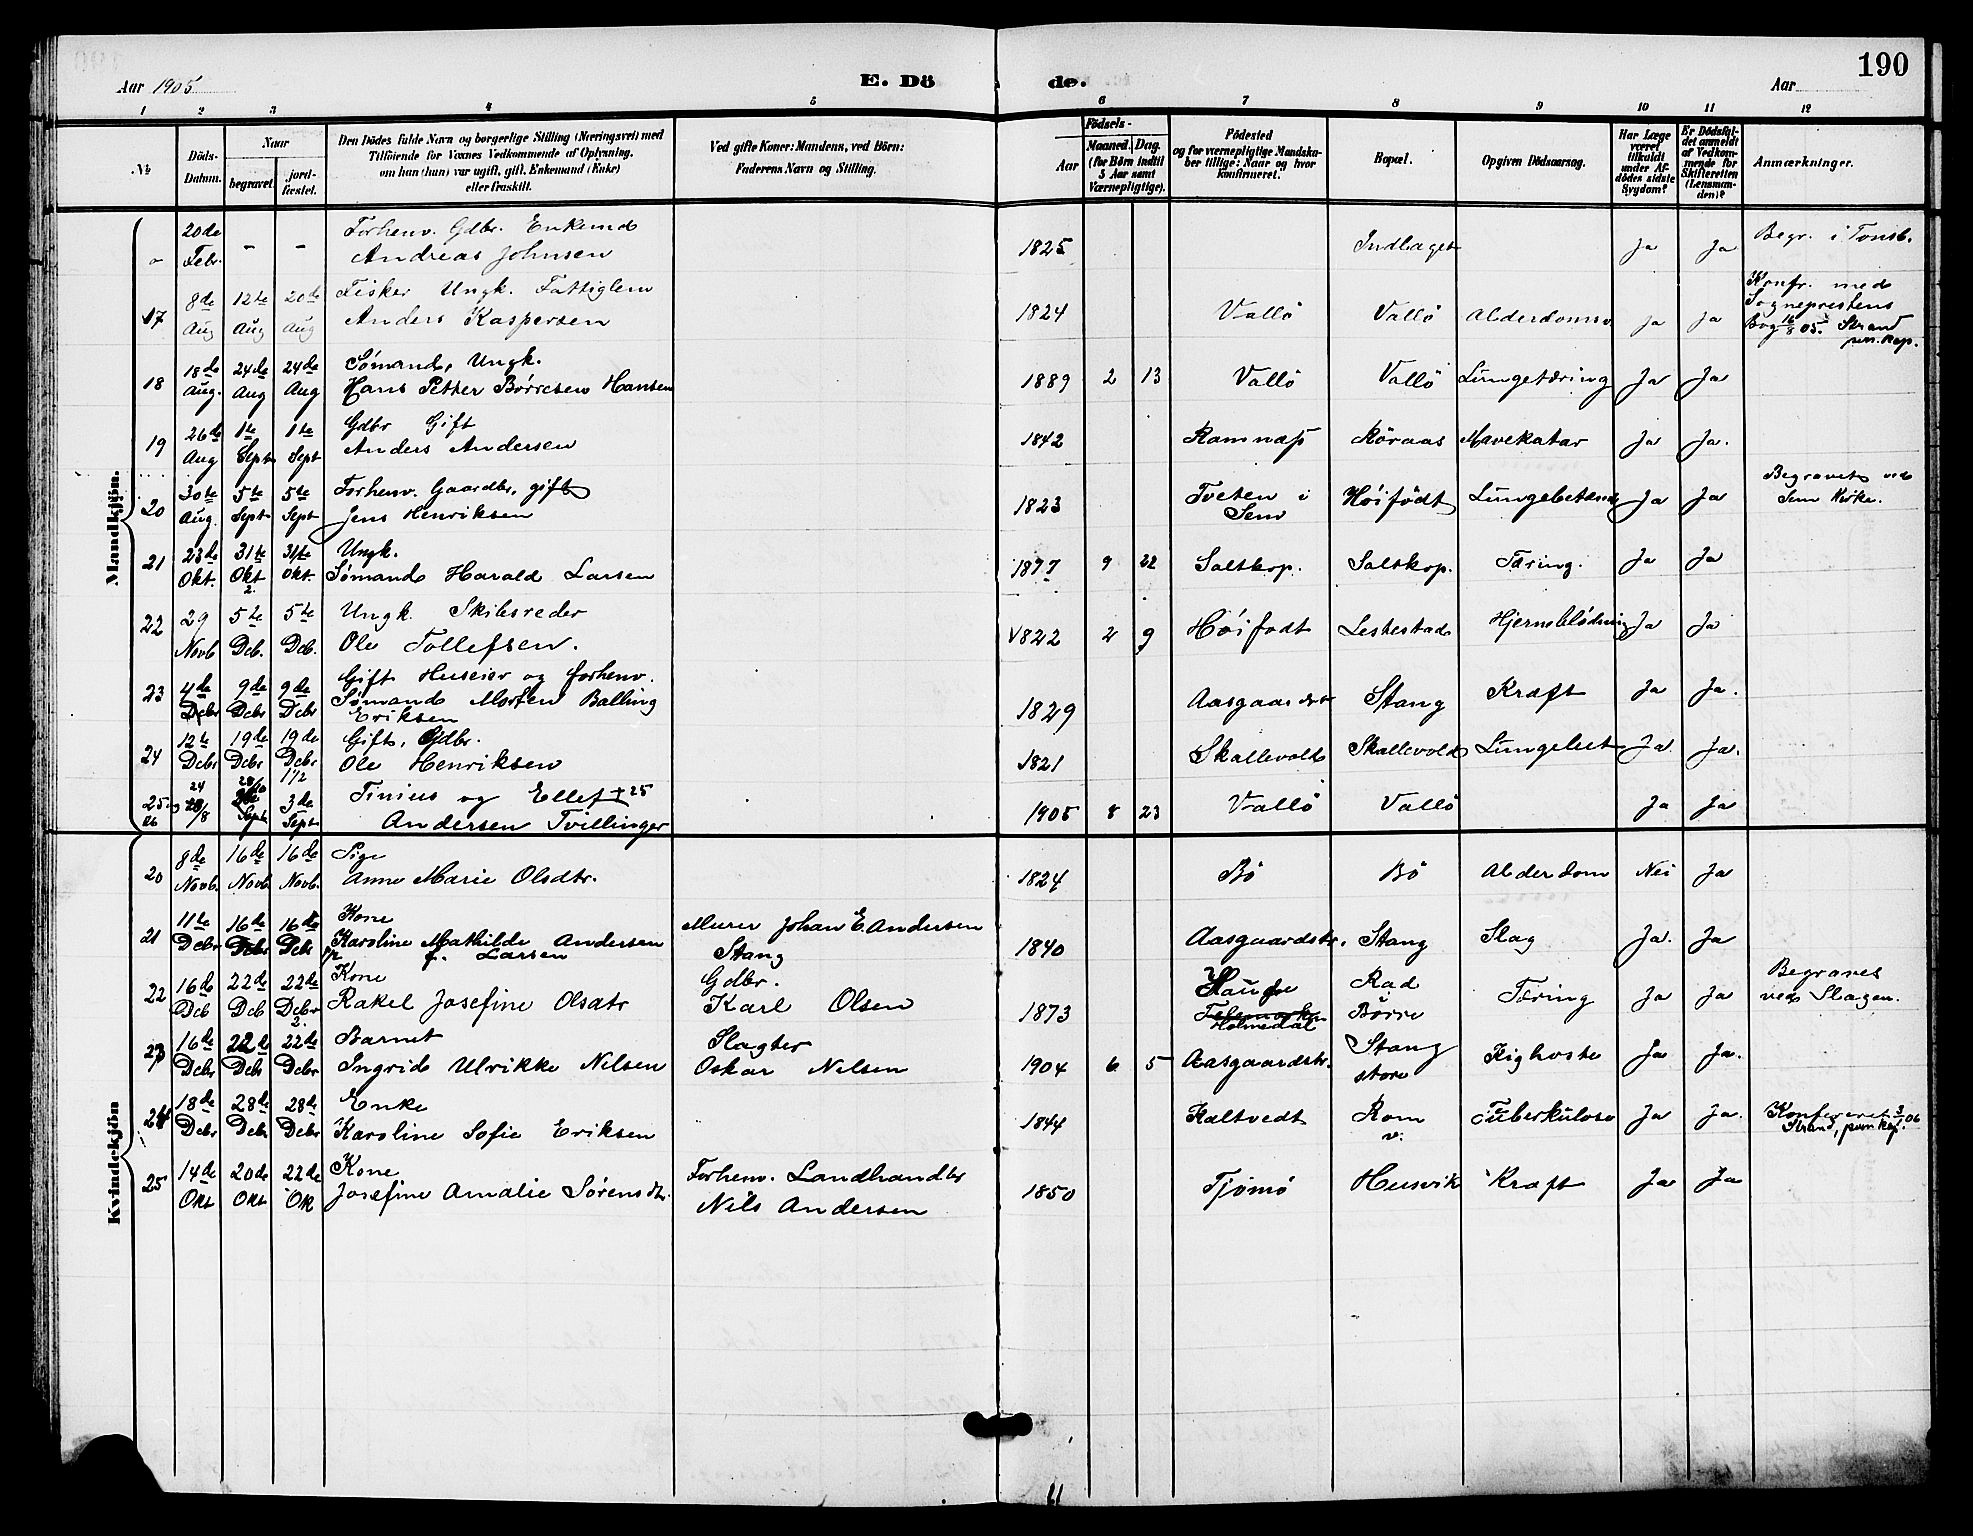 190
Aar 1905
E. Dö
de.
Aar
1 2 3 4 5 6 7 8 9 10 11 12
No
Döds-
Datum.
Naar
begravet.
jord-
fæstet.
Den Dödes fulde Navn og borgerlige Stilling (Næringsvei) med
Tilföiende for Voxnes Vedkommende af Oplysning.
om han (hun) var ugift, gift, Enkemand (Enke)
eller fraskilt.
Ved gifte Koner: Mandens, ved Börn:
Faderens Navn og Stilling.
Födsels-
Aar
Maaned. Dag.
(for Börn indtil
5 Aar samt
Værnepligtige).
Födested
og for værnepligtige Mandska-
ber tillige: Naar og hvor
konfirmeret.
Bopæl.
Opgiven Dödsaarsag.
Har Læge
været
tilkaldt
under Af-
dödes sidste
Sygdom?
Er Dödsfal-
det anmeldt
af Vedkom-
mende for
Skifteretten
(Lensman-
den)?
Anmærkninger.
Mandkjön.
20de Febr. - - Forhenv. Gdbr. Enkemd
Andreas Johnsen 1825 Indlaget Ja Ja Begr. i Tonsb.
17 8de Aug 12te Aug 20de Aug Fisker Ungk. Fattiglem
Anders Kaspersen 1824 Vallö Vallö Alderdomsv. Ja Ja Konfr. med
Sogneprestens
Bog 16/8 05. Strand
pers. kap.
18 18de Aug. 24de Aug 24de Aug Sömand, Ungk.
Hans Petter Börresen Hansen 1889 2 13 Vallö Vallö Lungetæring Ja Ja
19 26de Aug 1te Sept 1te Sept Gdbr Gift
Anders Andersen 1842 Ramnæs Röraas Mavekatar Ja Ja.
20 30te Aug. 5te Sept 5te Sept Forhenv. Gaardbr, gift
Jens Henriksen 1823 Tveten i
Sem Höifödt Lungebetænd Ja Ja Begravet ved
Sem Kirke.
21 23de Okt. 31te Okt 31te Okt. Ungk.
Sömand Harald Larsen 1877 9 22 Saltkop. Saltkop. Tæring. Ja Ja
22 29 Novb 5te Dcb. 5te Dcb. Ungk. Skibsreder
Ole Tollefsen. 1822 2 9 Höifodt Leskestad Hjerneblödning Ja Ja
23 4de Dcbr 9de Dcbr 9de Dcbr Gift Huseier og forhenv.
Sömand Morten Balling
Eriksen 1829 Aasgaardstr Stang Kræft Ja Ja.
24 12te Dcbr 19de Dcbr 19de Dcbr Gift, Gdbr.
Ole Henriksen 1821 Skallevold Skallevold Lungebet Ja Ja.
25 og 26 24 /8 Sept 3de Sept Tinius og Ellef + 25
Andersen Tvillinger 1905 8 23 Vallö Vallö Ja Ja
Kvindekjön
20 8de Novb. 16de Novb 16de Novb. Pige
Anne Marie Olsdtr. 1824 Bö Bö Alderdom Nei Ja
21 11te Dcbr 16de Dcbr 16de Dcbr Kone
Karoline Mathilde Andersen
f. Larsen Murer Johan E Andersen
Stang 1840 Aasgaardstr. Stang Slag Ja. Ja
22 16de Dcb 22de Dcb 22de Dcbr Kone
Rakel Josefine Olsdtr Gdbr.
Karl Olsen 1873 Holmedal Rad
Börre Tæring Ja Ja Begraves
ved Slagen.
23 16de Dcbr 22de Dcbr 22de Dcbr Barnet
Ingrid Ulrikke Nilsen Slagter
Oskar Nilsen 1904 6 5 Aasgaardstr. Stang
store Kighoste Ja Ja.
24 18de Dcbr 28de Dcbr 28de Dcbr Enke
Karoline Sofie Eriksen 1844 Kaltvedt Rom
v. Tuberkulose Ja Ja. Konfereret 3/1 06
Strand, pers. kap.
25 14de Okt 20de Okt 22de Ok Kone
Josefine Amalie Sörensdtr. Forhenv. Landhandler
Nils Andersen 1850 Tjömö Husvik Kræft Ja Ja